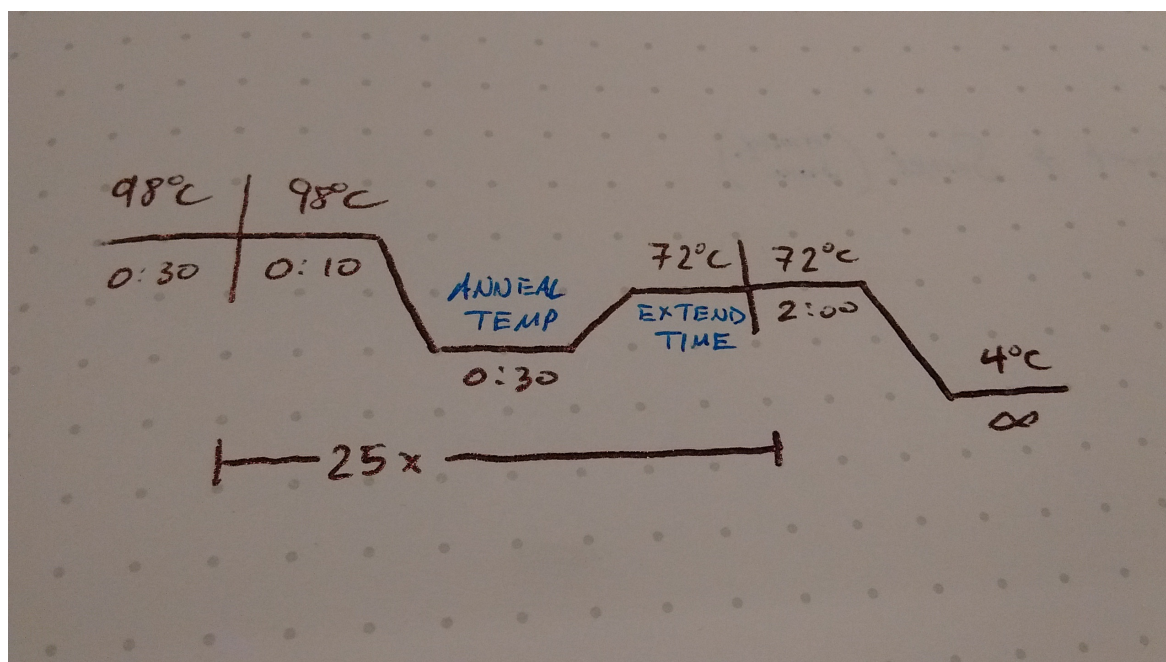 98°C 98°C
0:30 0:10
ANNEAL
TEMP
0:30
72°C 72°C
EXTEND
TIME
2:00
4°C
∞
25x